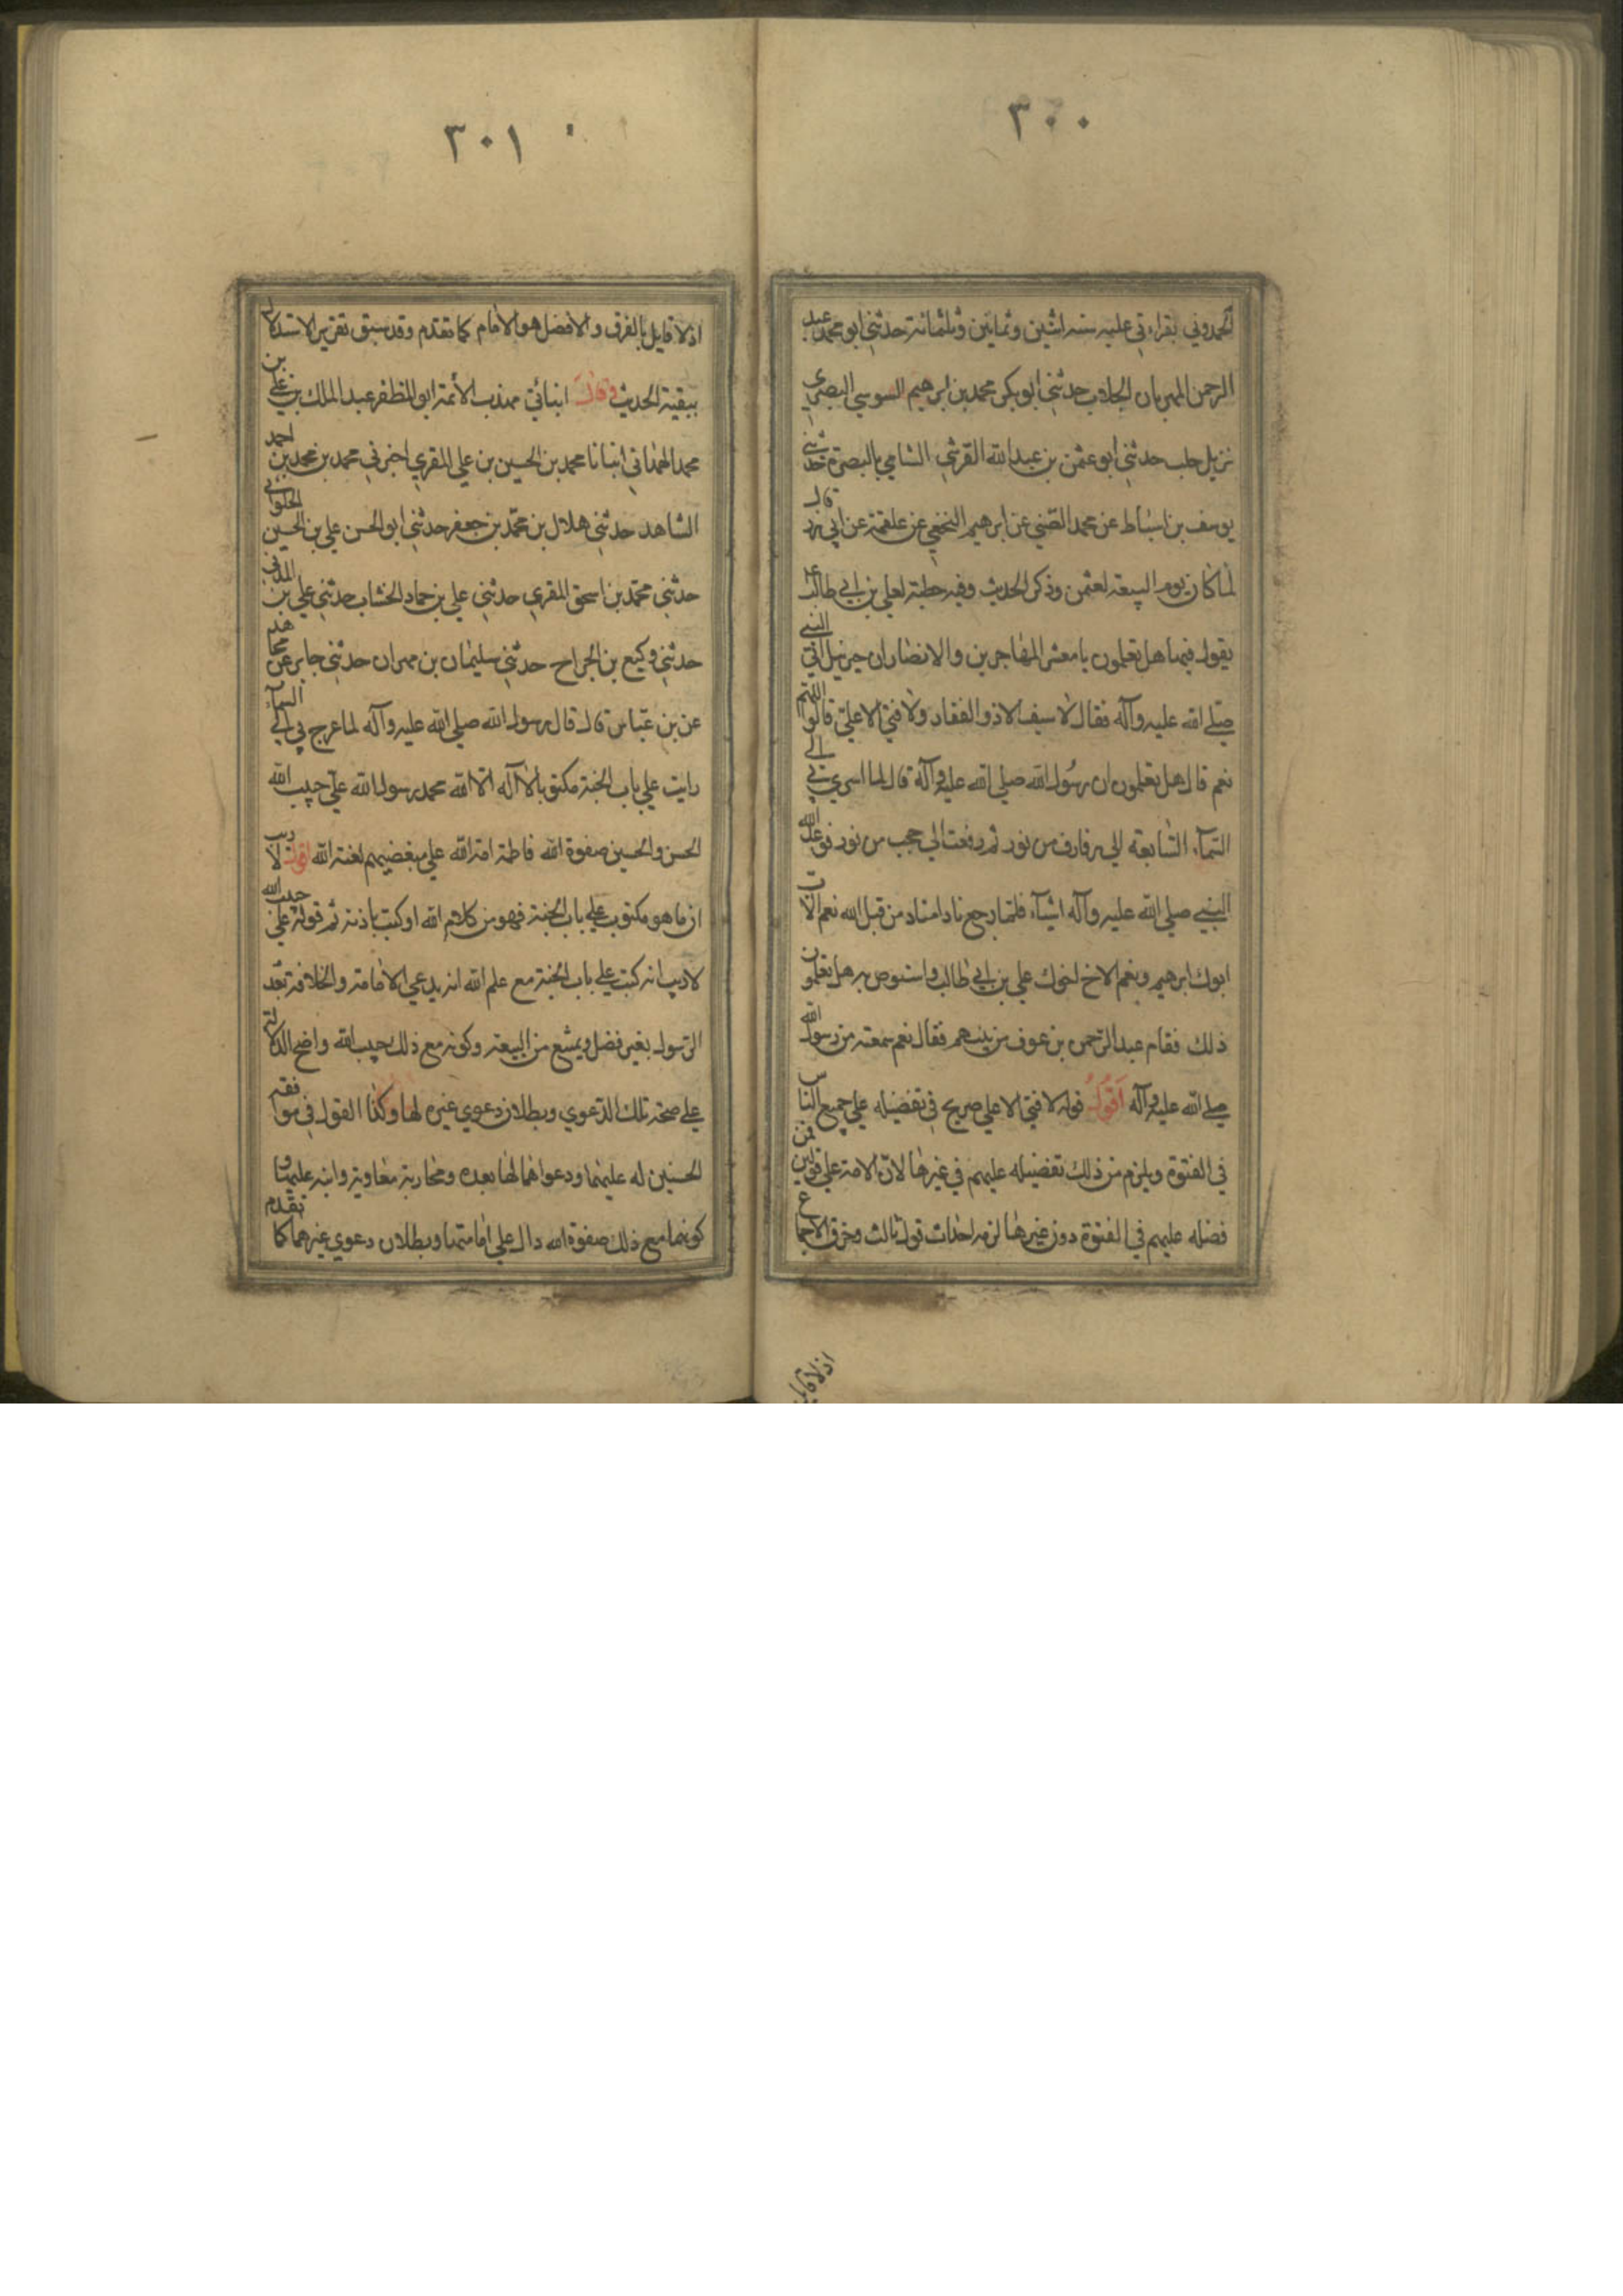 ٣٠٠
الحمدوني بقراءتي عليه سنه اثنين وثمانين وثلثمائة حدثني ابو محمد عبد
الرحمن المهربان الجلاب حدثني ابو بكر محمد بن ابرهيم السوسي البصري
نزيل حلب حدثني ابو عثمن بن عبد الله القرشي الشامي بالبصرة حدثني
يوسف بن اسباط عن محمد الضبي عن ابرهيم النخعي عن علقمة عن ابي ذر قال
لما كان يوم البيعة لعثمن وذكر الحديث وفيه خطبة لعلي بن ابي طالب ع
يقول فيها هل تعلمون يا معشر المهاجرين والانصار ان جبرئيل اتي النبي
صلي الله عليه وآله فقال لا سيف الا ذو الفقار ولا فتي الا علي قالوا اللهم
نعم قال هل تعلمون ان رسول الله صلي الله عليه وآله قال لما اسري بي الي
السمآء السابعة الي رفارف من نور ثم رفعت الي حجب من نور فوعد الله
النبي صلي الله عليه وآله اشيآء فلما رجع ناد امناد من قبل الله نعم الاب
ابوك ابرهيم ونعم الاخ اخوك علي بن ابي طالب واستوص به هل تعلمون
ذلك فقام عبد الرحمن بن عوف من بينهم فقال نعم سمعته من رسول الله
صلي الله عليه وآله اقول قوله لا فتي الا علي صريح في تفضيله علي جميع الناس
في الفتوة ويلزم من ذلك تفضيله عليهم في غيرها لان الامة علي قولين فمن
فضله عليهم في الفتوة دون غيرها لزمه احداث قول ثالث وخرق الاجماع
اذ لا قايل
٣٠١
اذ لا قايل بالفرق والافضل هو الامام كما تقدم وقد سبق تقرير الاستدلال
ببقية الحديث وقال انبائي مهذب الأئمة ابو المظفر عبد الملك بن علي بن
محمد الهمداني انبانا محمد بن الحسين بن علي المقري اخبرني محمد بن محمد بن احمد
الشاهد حدثني هلال بن محمد بن جعفر حدثني ابو الحسن علي بن الحسين الحلواني
حدثني محمد بن اسحق المقري حدثني علي بن حماد الخشاب حدثني علي بن المدني
حدثني وكيع بن الجراح حدثني سليمان بن مهران حدثني جابر عن مجاهد
عن بن عباس قال قال رسول الله صلي الله عليه وآله لما عرج بي الي السمآء
رايت علي باب الجنة مكتوبا لا اله الا الله محمد رسول الله علي حبيب الله
الحسن والحسين صفوة الله فاطمة امة الله علي مبغضيهم لعنة الله اقول لا ريب
ان ما هو مكتوب علي باب الجنة فهو من كلام الله او كتب باذنه ثم قوله علي حبيب الله
لا ريب انه كتب علي باب الجنة مع علم الله انه يدعي الامامة والخلافة بعد
الرسول بغير فصل ويمتنع من البيعة وكونه مع ذلك حبيب الله واضح الدلالة
علي صحة تلك الدعوي وبطلان دعوي غيره لها وكذا القول في موافقة
الحسنين له عليهما ودعواهما لها بعده ومحاربة معاوية وابنه عليها و
كونهما مع ذلك صفوة الله دال علي امامتهما وبطلان دعوي غيرهما كما تقدم